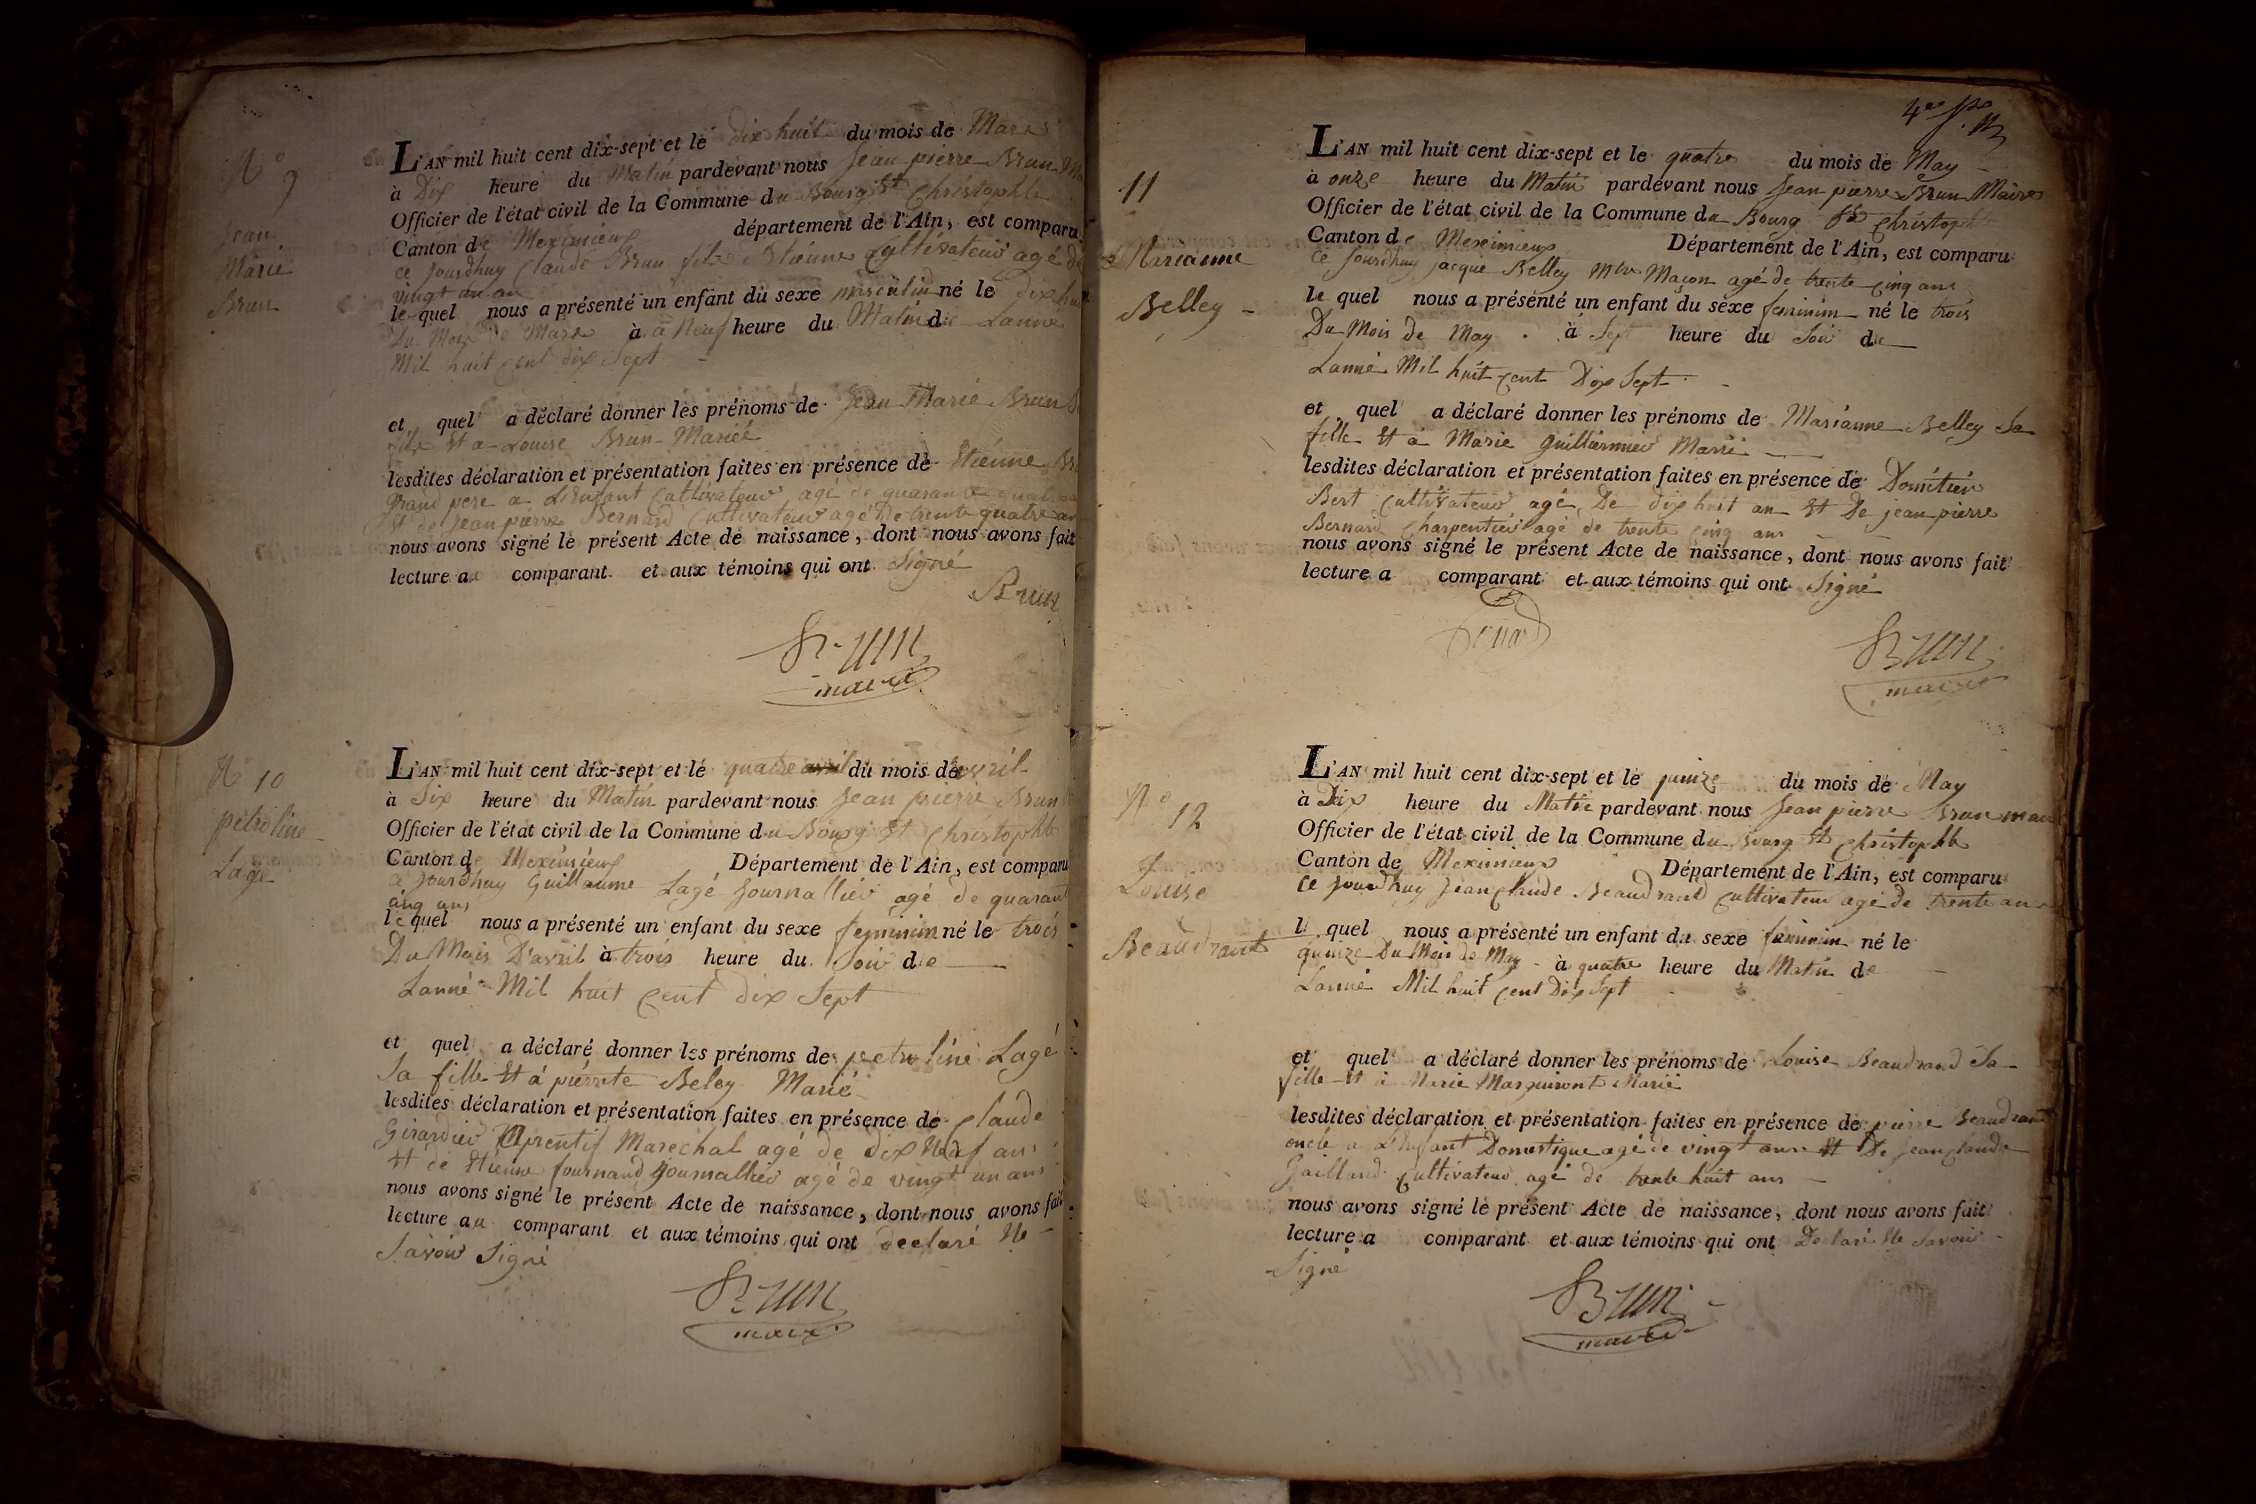 N° 9
Jean
Marie
Brun
L'AN mil huit cent dix-sept et le dix huit du mois de Mars
à Dix heure du Matin pardevant nous Jean pierre Brun
Officier de l'état civil de la Commune du Bourg St Christophle
Canton de Meximieux département de l'Ain, est comparu
ce jourdhuy Claude Brun fils Etienne Cultivateur agé de
vingt un an
le quel nous a présenté un enfant du sexe masculin né le dix huit
Du Mois de Mars à a Neuf heure du Matin de Lanné
Mil huit cent dix Sept
et quel a déclaré donner les prénoms de Jean Marie Brun
fils Et a Louise Brun Marieé
lesdites déclaration et présentation faites en présence de Etienne
Grand pere a Lenfant Cultivateur agé de quarante quatre
Et de Jean pierre Bernard Cultivateur agé De trente quatre an
nous avons signé le présent Acte de naissance, dont nous avons fait
lecture au comparant et aux témoins qui ont Signé
Brun
Brun
maire
N° 10
petroline
Lagé
L'AN mil huit cent dix-sept et le quatre avril du mois de avril
à Six heure du Matin pardevant nous Jean pierre Brun
Officier de l'état civil de la Commune du Bourg St Christophle
Canton de Meximieux Département de l'Ain, est comparu
ce jourdhuy Guillaume Lagé Journallier agé de quarant
cinq ans
le quel nous a présenté un enfant du sexe feminim né le trois
Du Mois D'avril à trois heure du Soir de
Lanné Mil huit cent dix Sept
et quel a déclaré donner les prénoms de petroline Lagé
Sa fille Et a pierrete Beley Marié
lesdites déclaration et présentation faites en présence de Claude
Girardier Aprentif Marechal agé de dix Neuf ans
Et de Etienne fournand Journallier agé de vingt un ans
nous avons signé le présent Acte de naissance, dont nous avons fait
lecture au comparant et aux témoins qui ont declaré Ne
Savoir Signé
Brun
maire
11
Marianne
Belley
L'AN mil huit cent dix-sept et le quatre du mois de May
à onze heure du Matin pardevant nous Jean pierre Brun Maire
Officier de l'état civil de la Commune du Bourg St Christophle
Canton de Meximieux Département de l'Ain, est comparu
ce Jourdhuy jacque Belley Mtre Maçon agé de trente cinq ans
le quel nous a présenté un enfant du sexe feminim né le trois
Du Mois de May à Sept heure du Soir de
Lanné Mil huit cent Dix Sept
et quel a déclaré donner les prénoms de Marianne Belley Sa
fille Et a Marie Guilliermier Marié
lesdites déclaration et présentation faites en présence de Domitien
Bert Cultivateur agé De dix huit an Et De jean pierre
Bernard Charpentier agé de trente cinq ans
nous avons signé le présent Acte de naissance, dont nous avons fait
lecture a comparant et aux témoins qui ont Signé
Brun
maire
N° 12
Louise
Beaudrant
L'AN mil huit cent dix-sept et le quinze du mois de May
à Dix heure du Matin pardevant nous Jean pierre Brun maire
Officier de l'état civil de la Commune du Bourg St Christophle
Canton de Meximieux Département de l'Ain, est comparu
ce jourdhuy Jean Claude Beaudrand Cultivateur agé de trente an
le quel nous a présenté un enfant du sexe feminin né le
quinze Du Mois de May à quatre heure du Matin de
Lanné Mil huit cent Dix Sept
et quel a déclaré donner les prénoms de Louise Beaudrand Sa
fille Et a Marie Marguiront Marié
lesdites déclaration et présentation faites en présence de pierre Beaudrand
oncle a L'enfant Domestique agé de vingt ans Et De Jean Claude
Gailland Cultivateur agé de trente huit ans
nous avons signé le présent Acte de naissance, dont nous avons fait
lecture a comparant et aux témoins qui ont Declaré Ne Savoir
Signé
Brun
maire